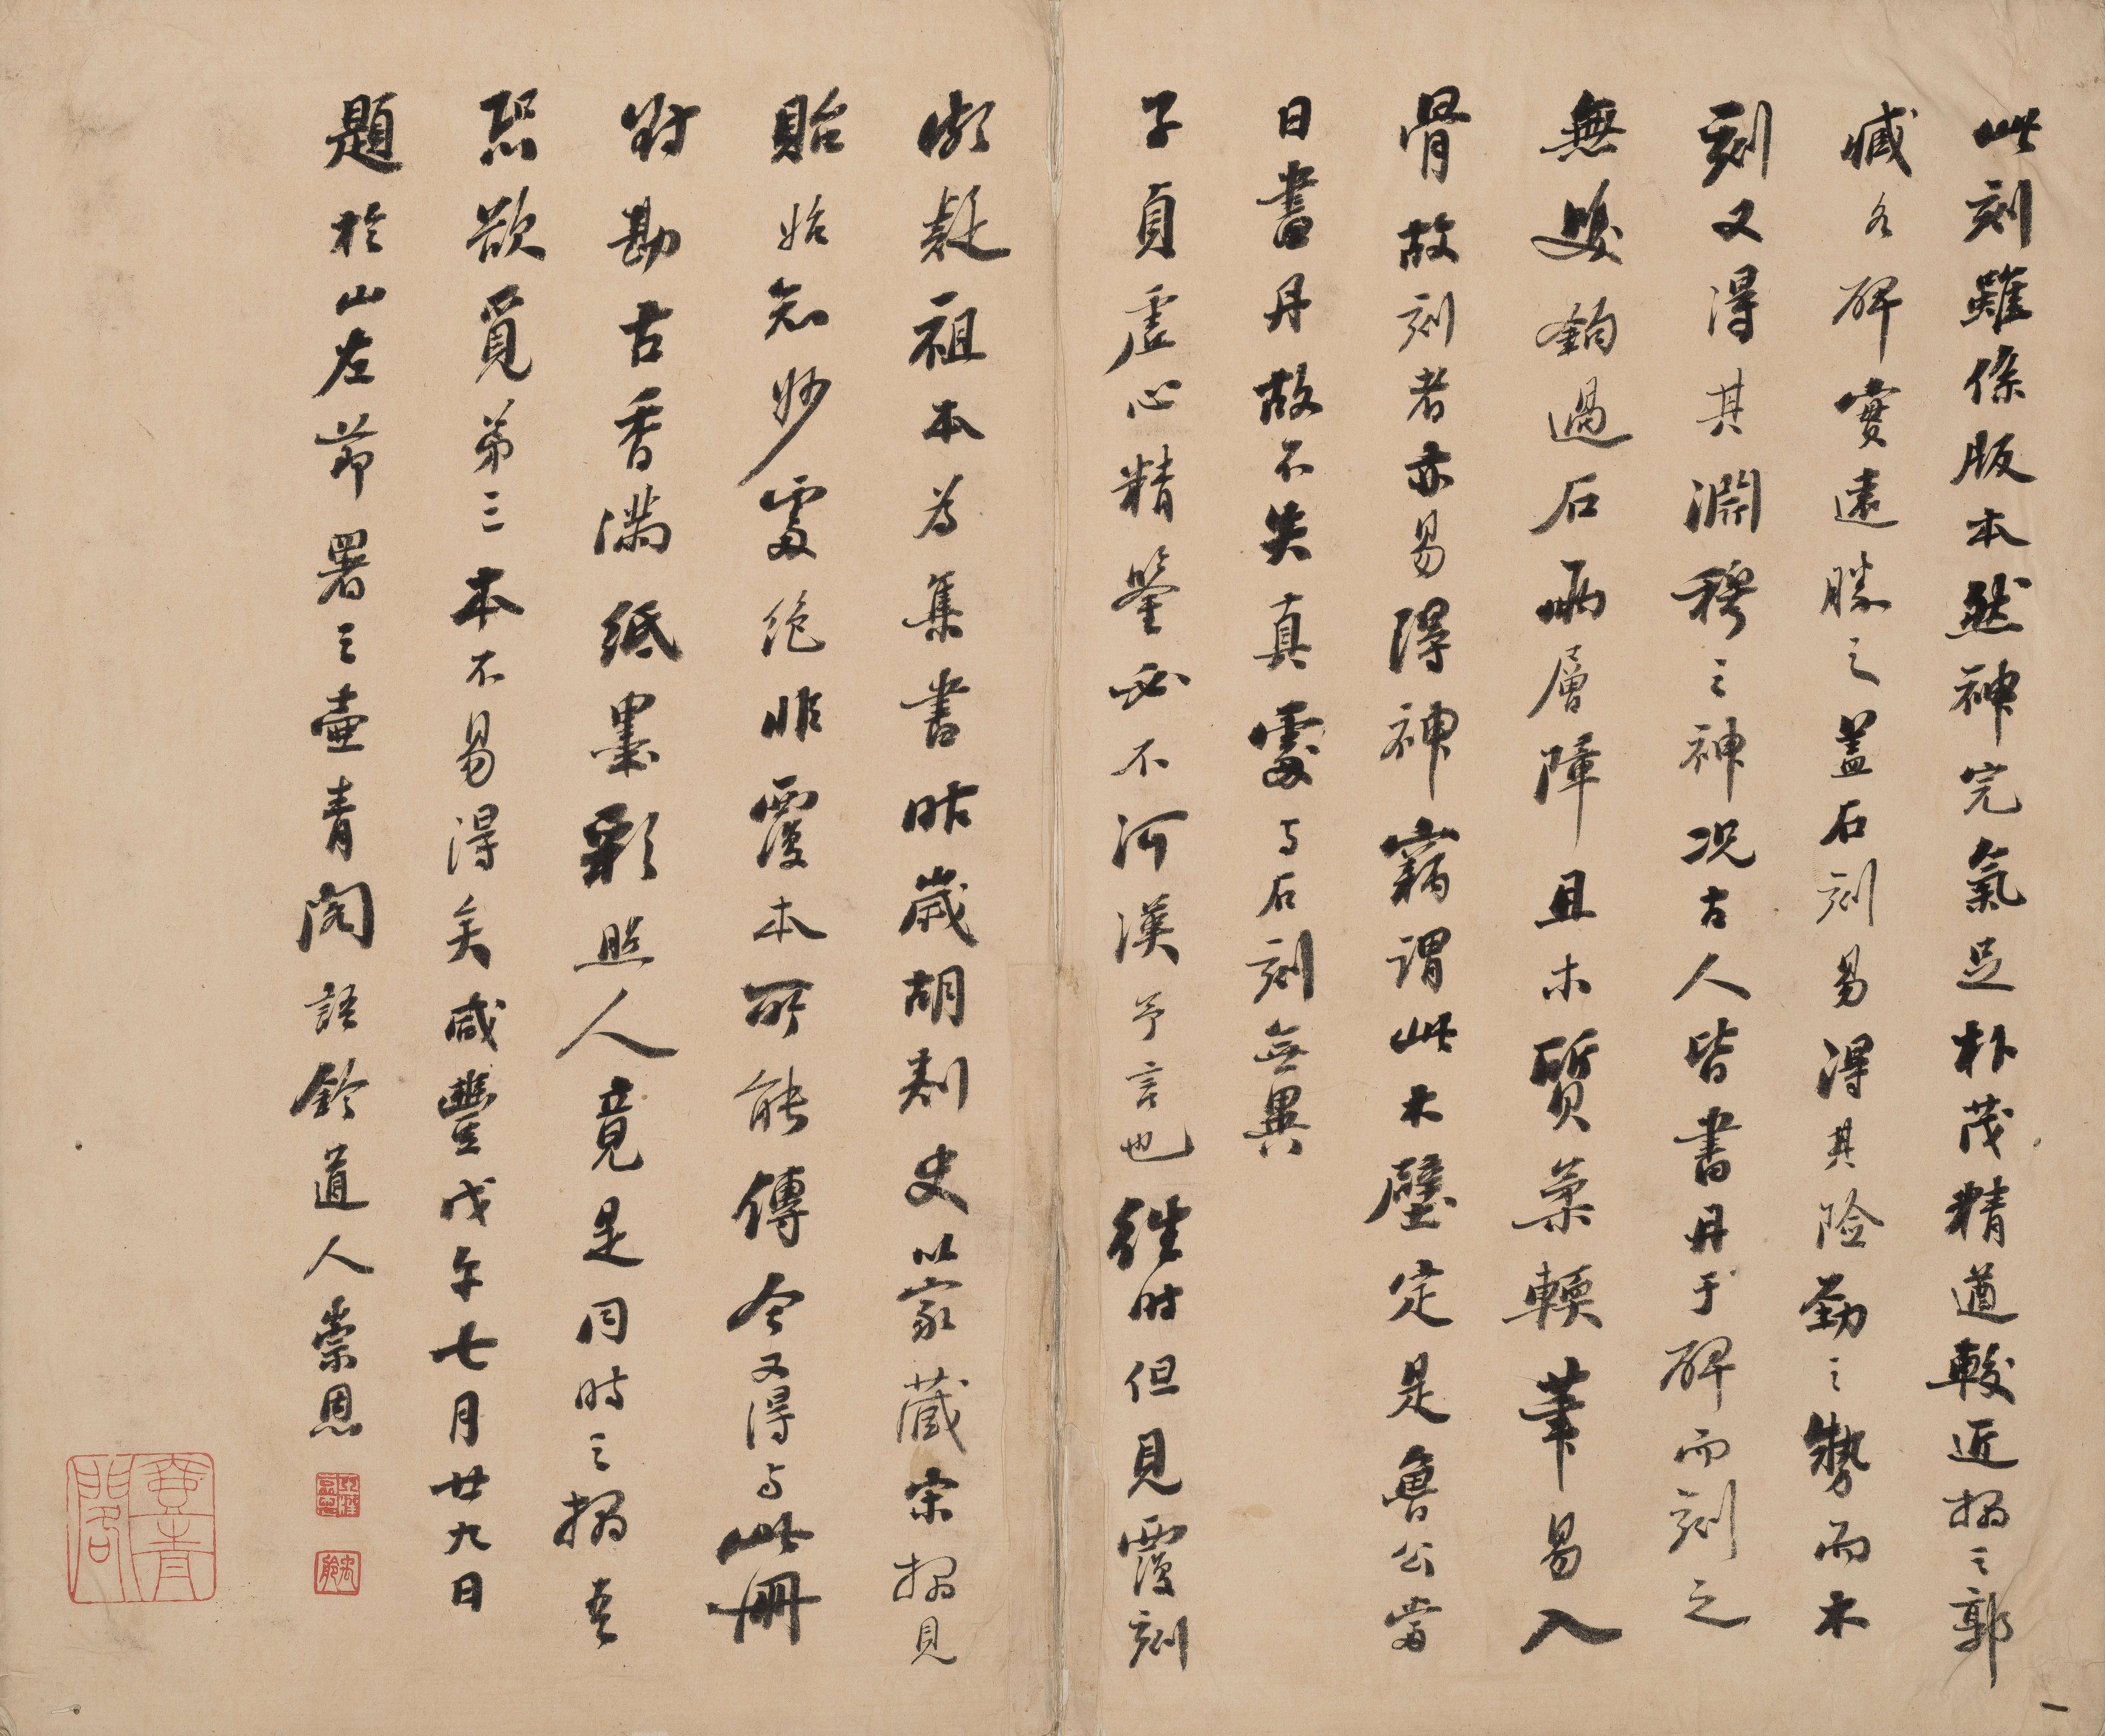 此刻雖係版本然神完氣足朴茂精遒較近搨之郭
臧各碑實遠勝之蓋石刻易得其險勁之勢而木
刻又得其淵穆之神况古人皆書丹于碑而刻之
無雙鉤過石兩層障且木質柔輭筆易入
骨故刻者亦易得神竊謂此木壁定是魯公當
日書丹故不失真處与石刻無異
子貞虛心精鑒必不河漢予言也往時但見覆刻
頗疑祖本为集書昨歲胡刺史以家藏宋搨見
貽始知妙處絶非覆本所能傳今又得与此冊
對勘古香滿紙墨彩照人竟是同時之搨奇
恐欲覓第三本不易得矣咸豐戊午七月廿九日
題於山左節署之壷青閣語鈴道人崇恩
壷青閣